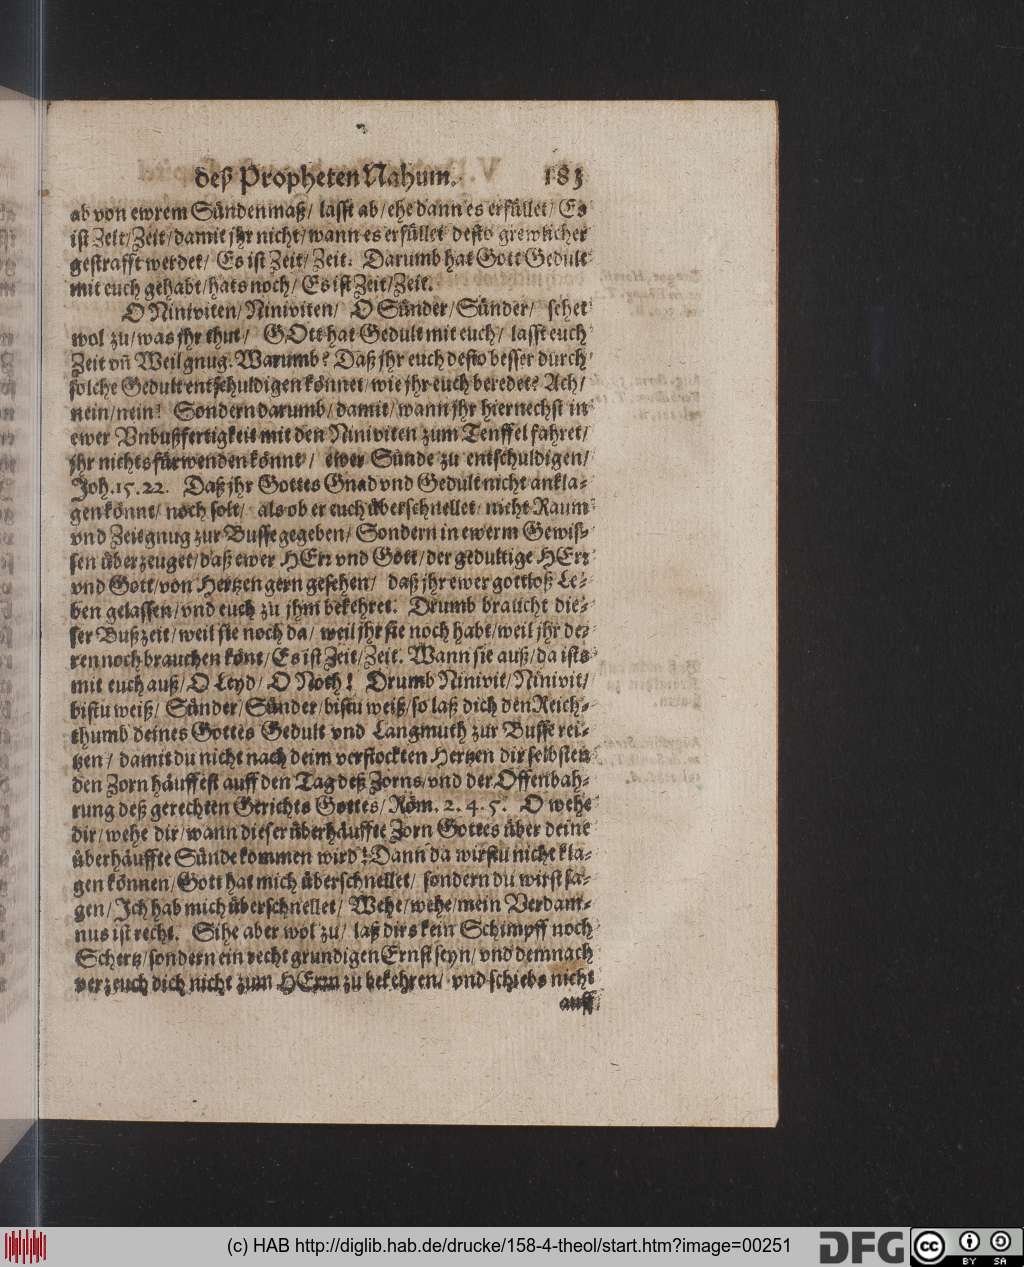 deß Propheten Nahum. 183
ab von ewrem Sündenmaß/ lasst ab/ ehe dann es erfüllet/ Es
ist Zeit/ Zeit/ damit jhr nicht/ wann es erfüllet desto grewlicher
gestrafft werdet/ Es ist Zeit/ Zeit. Darumb hat Gott Gedult
mit euch gehabt/ hats noch/ Es ist Zeit/ Zeit.
O Niniviten/ Niniviten/ O Sünder/ Sünder/ sehet
wol zu/ was jhr thut/ GOtt hat Gedult mit euch/ lasst euch
Zeit vñ Weil gnug. Warumb? Daß jhr euch desto besser durch
solche Gedult entschuldigen könnet/ wie jhr euch beredet? Ach/
nein/ nein! Sondern darumb/ damit/ wann jhr hiernechst in
ewer Vnbußfertigkeit mit den Niniviten zum Teuffel fahret/
jhr nichts fürwenden könnt/ ewer Sünde zu entschuldigen/
Joh. 15. 22. Daß jhr Gottes Gnad vnd Gedult nicht ankla-
gen könnt/ noch solt/ als ob er euch überschnellet/ nicht Raum
vnd Zeit gnug zur Busse gegeben/ Sondern in ewerm Gewis-
sen überzeuget/ daß ewer HErr vnd Gott/ der gedultige HErr
vnd Gott/ von Hertzen gern gesehen/ daß jhr ewer gottloß Le-
ben gelassen/ vnd euch zu jhm bekehret. Drumb braucht die-
ser Bußzeit/ weil sie noch da/ weil jhr sie noch habt/ weil jhr de-
ren noch brauchen könt/ Es ist Zeit/ Zeit. Wann sie auß/ da ists
mit euch auß/ O Leyd/ O Noth! Drumb Ninivit/ Ninivit/
bistu weiß/ Sünder/ Sünder/ bistu weiß/ so laß dich den Reich-
thumb deines Gottes Gedult vnd Langmuth zur Busse rei-
tzen/ damit du nicht nach deim verstockten Hertzen dir selbsten
den Zorn häuffest auff den Tag deß Zorns/ vnd der Offenbah-
rung deß gerechten Gerichts Gottes/ Röm. 2. 4. 5. O wehe
dir/ wehe dir/ wann dieser überhäuffte Zorn Gottes über deine
überhäuffte Sünde kommen wird! Dann da wirstu nicht kla-
gen können/ Gott hat mich überschnellet/ sondern du wirst sa-
gen/ Ich hab mich überschnellet/ Wehe/ wehe/ mein Verdam-
nus ist recht. Sihe aber wol zu/ laß dirs kein Schimpff noch
Schertz/ sondern ein recht grundigen Ernst seyn/ vnd demnach
verzeuch dich nicht zum HErrn zu bekehren/ vnd schiebs nicht
auff
(c) HAB http://diglib.hab.de/drucke/158-4-theol/start.htm?image=00251
DFG
cc
BY SA